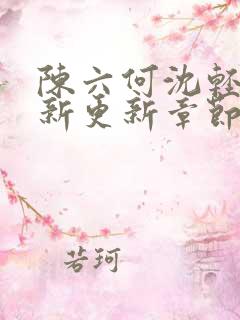 陳六何沈輕
新更新章節
若珂